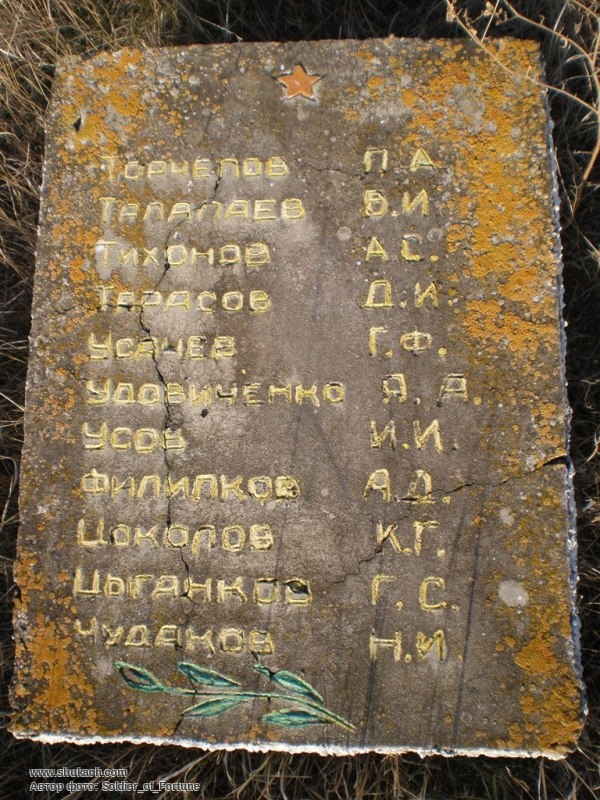 Торчепов П.А.
Талалаев В.И.
Тихонов А.С.
Тарасов Д.И.
Усачев Г.Ф.
Удовиченко Я.А.
Усов И.И.
Филипков А.Д.
Цоколов К.Г.
Цыганков Г.С.
Чудаков Н.И.
www.shukach.com
Автор фото: Soldier_of_Fortune